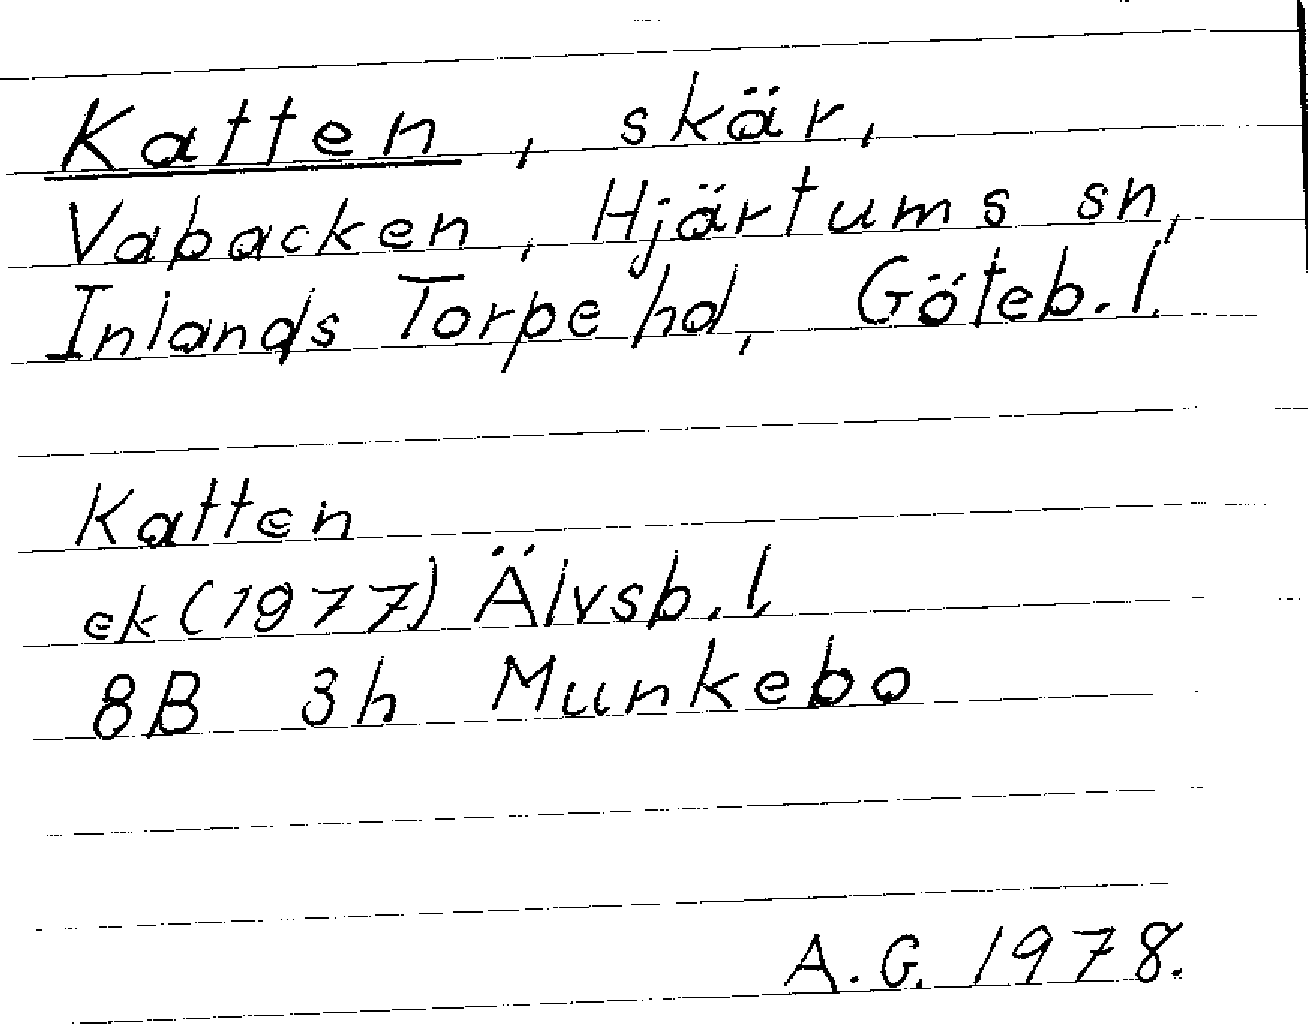 Katten, skär,
Vabacken, Hjärtums sn,
Inlands Torpe hd, Göteb. l.
Katten
ek (1977) Älvsb. l
8B 3h Munkebo
A. G. 1978.